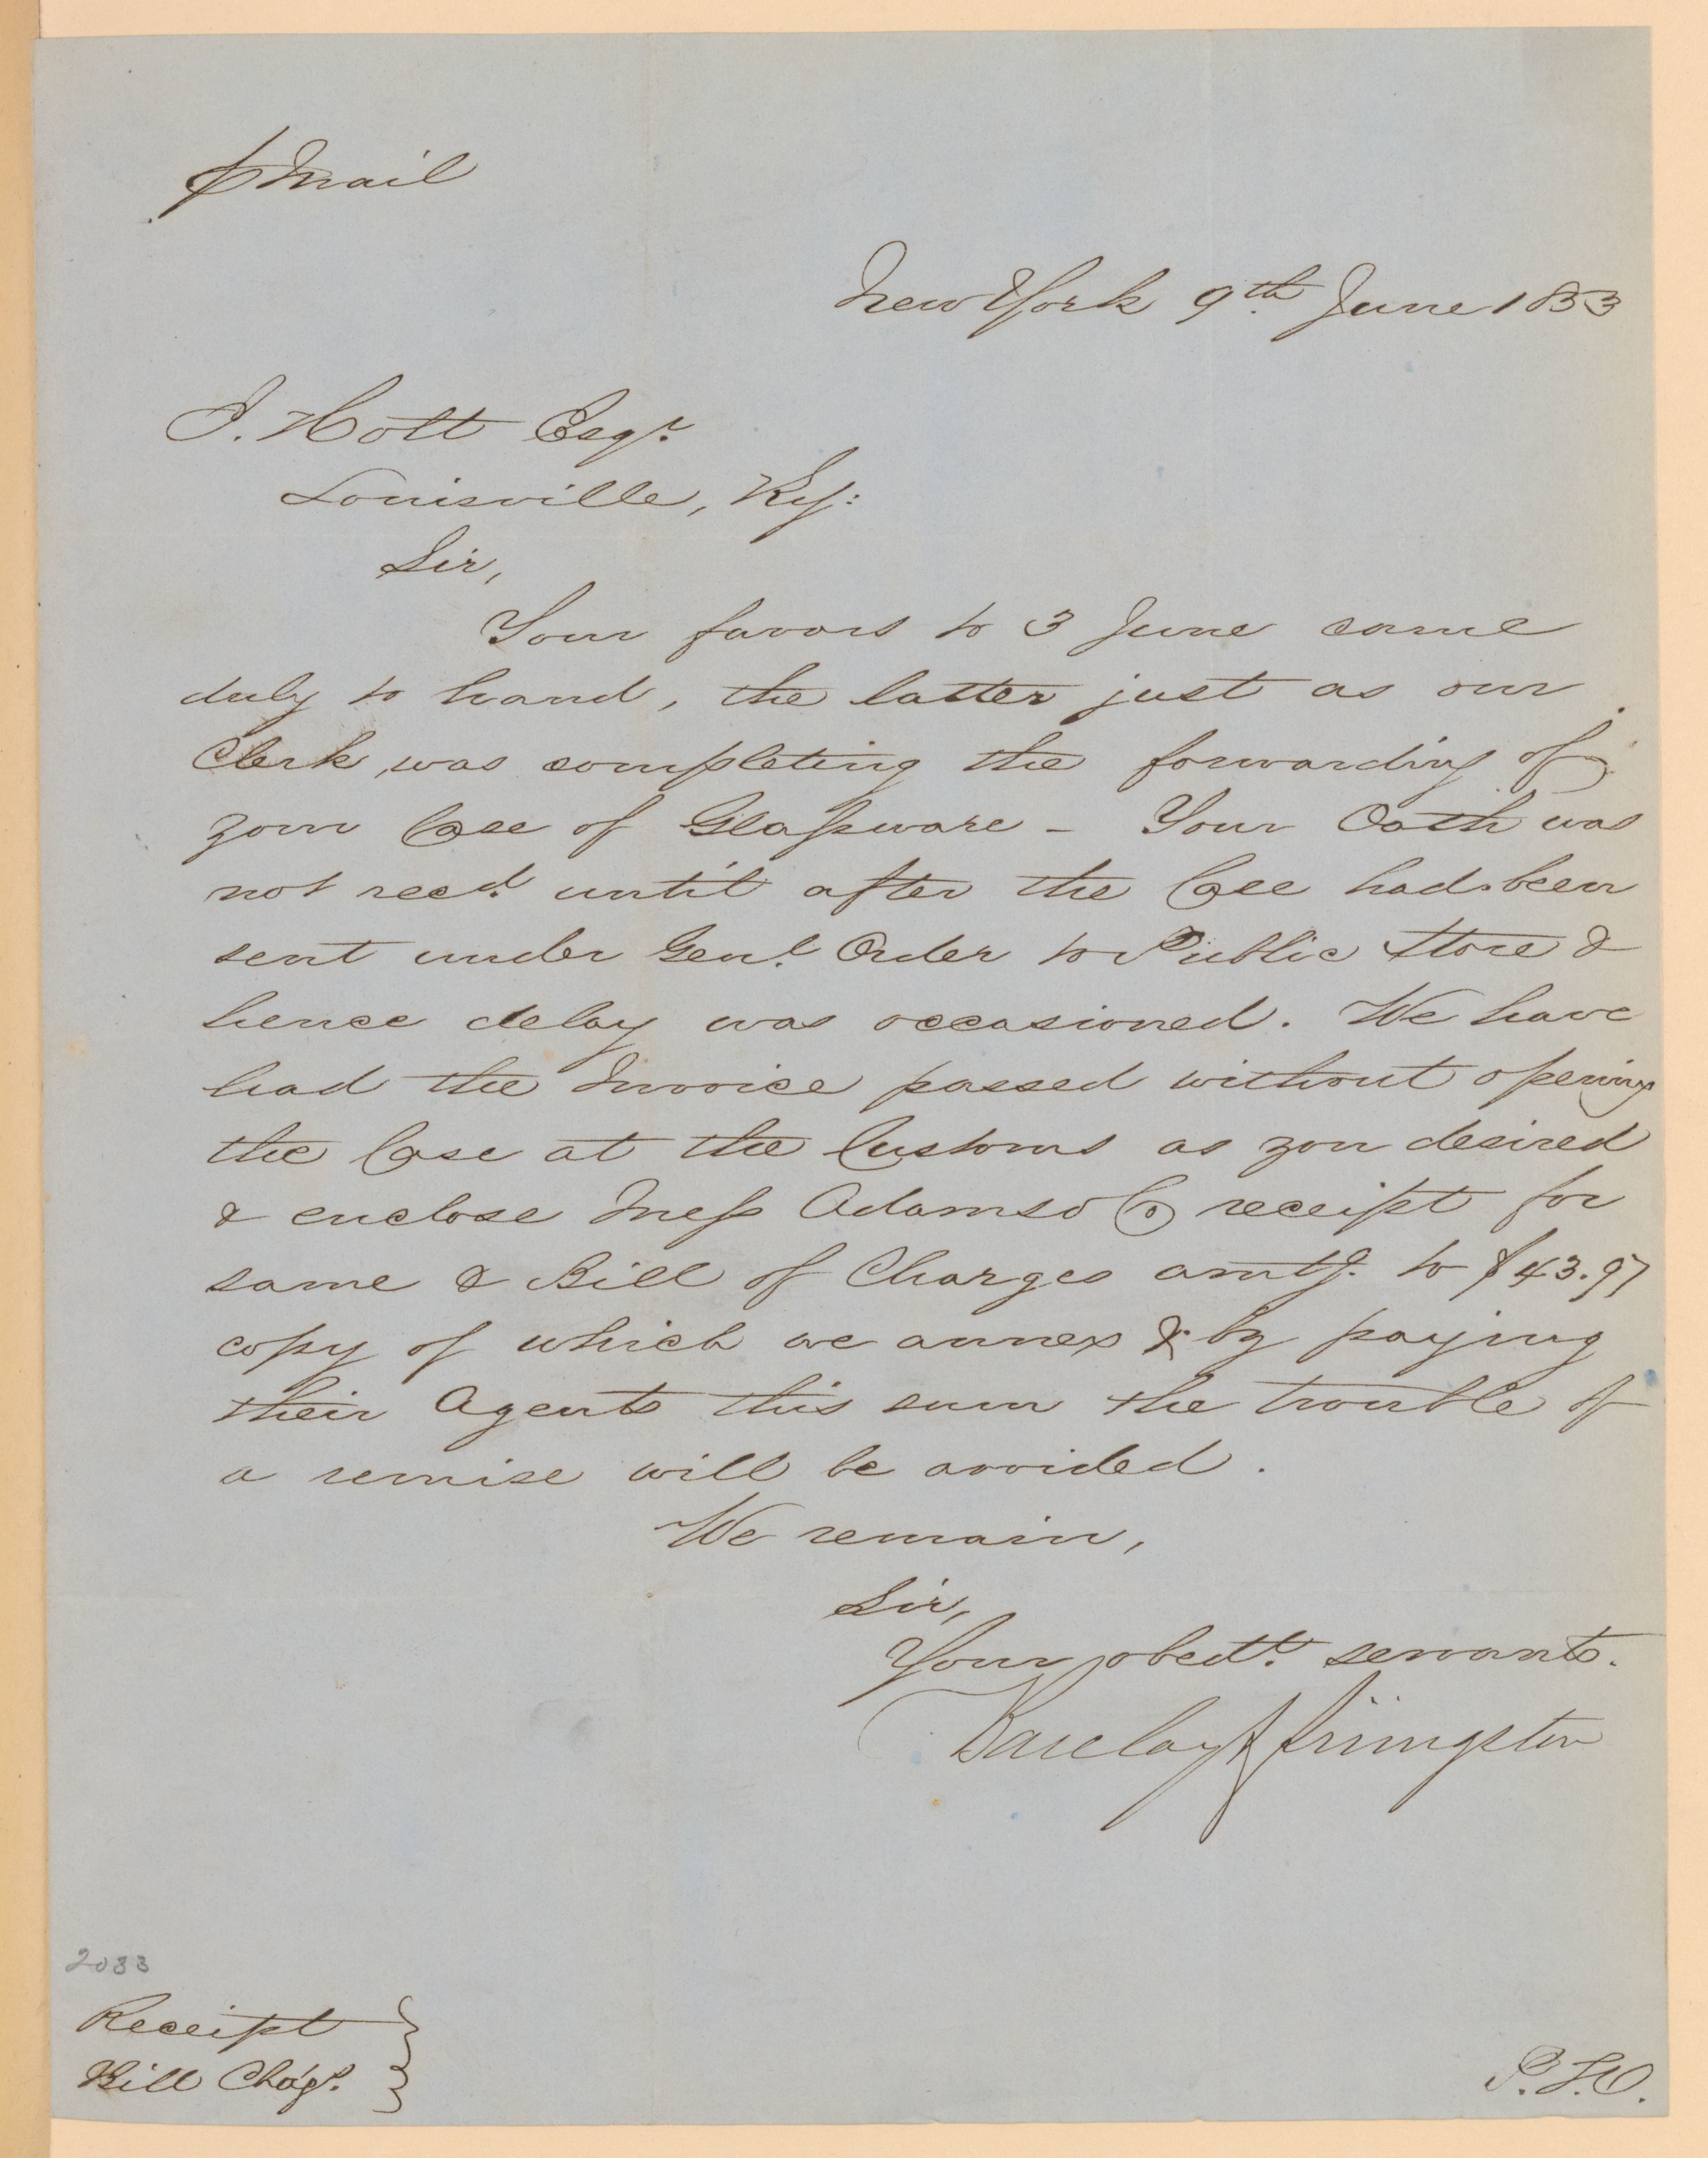 ℔ Mail
New York 9th. June 1853
J. Holt Esqr.
Louisville, Ky:
Sir,
Your favors to 3 June came
duly to hand, the latter just as our
Clerk, was completing the forwarding of
your Case of Glassware - Your Oath was
not recd. until after the Case had been
sent under Genl. Order to Public Store &
hence delay was occasioned. We have
had the Invoice passed without opening
the Case at the Customs as you desired
& enclose Mess Adams & Co receipt for
same & Bill of Charges amtg. to $43.97
copy of which we annex & by paying
their Agents this sum the trouble of
a remise will be avoided.
We remain,
Sir,
Your obedt. servants.
Barclay & Livingston
2033
Receipt
Bill Chags.
P.T.O.